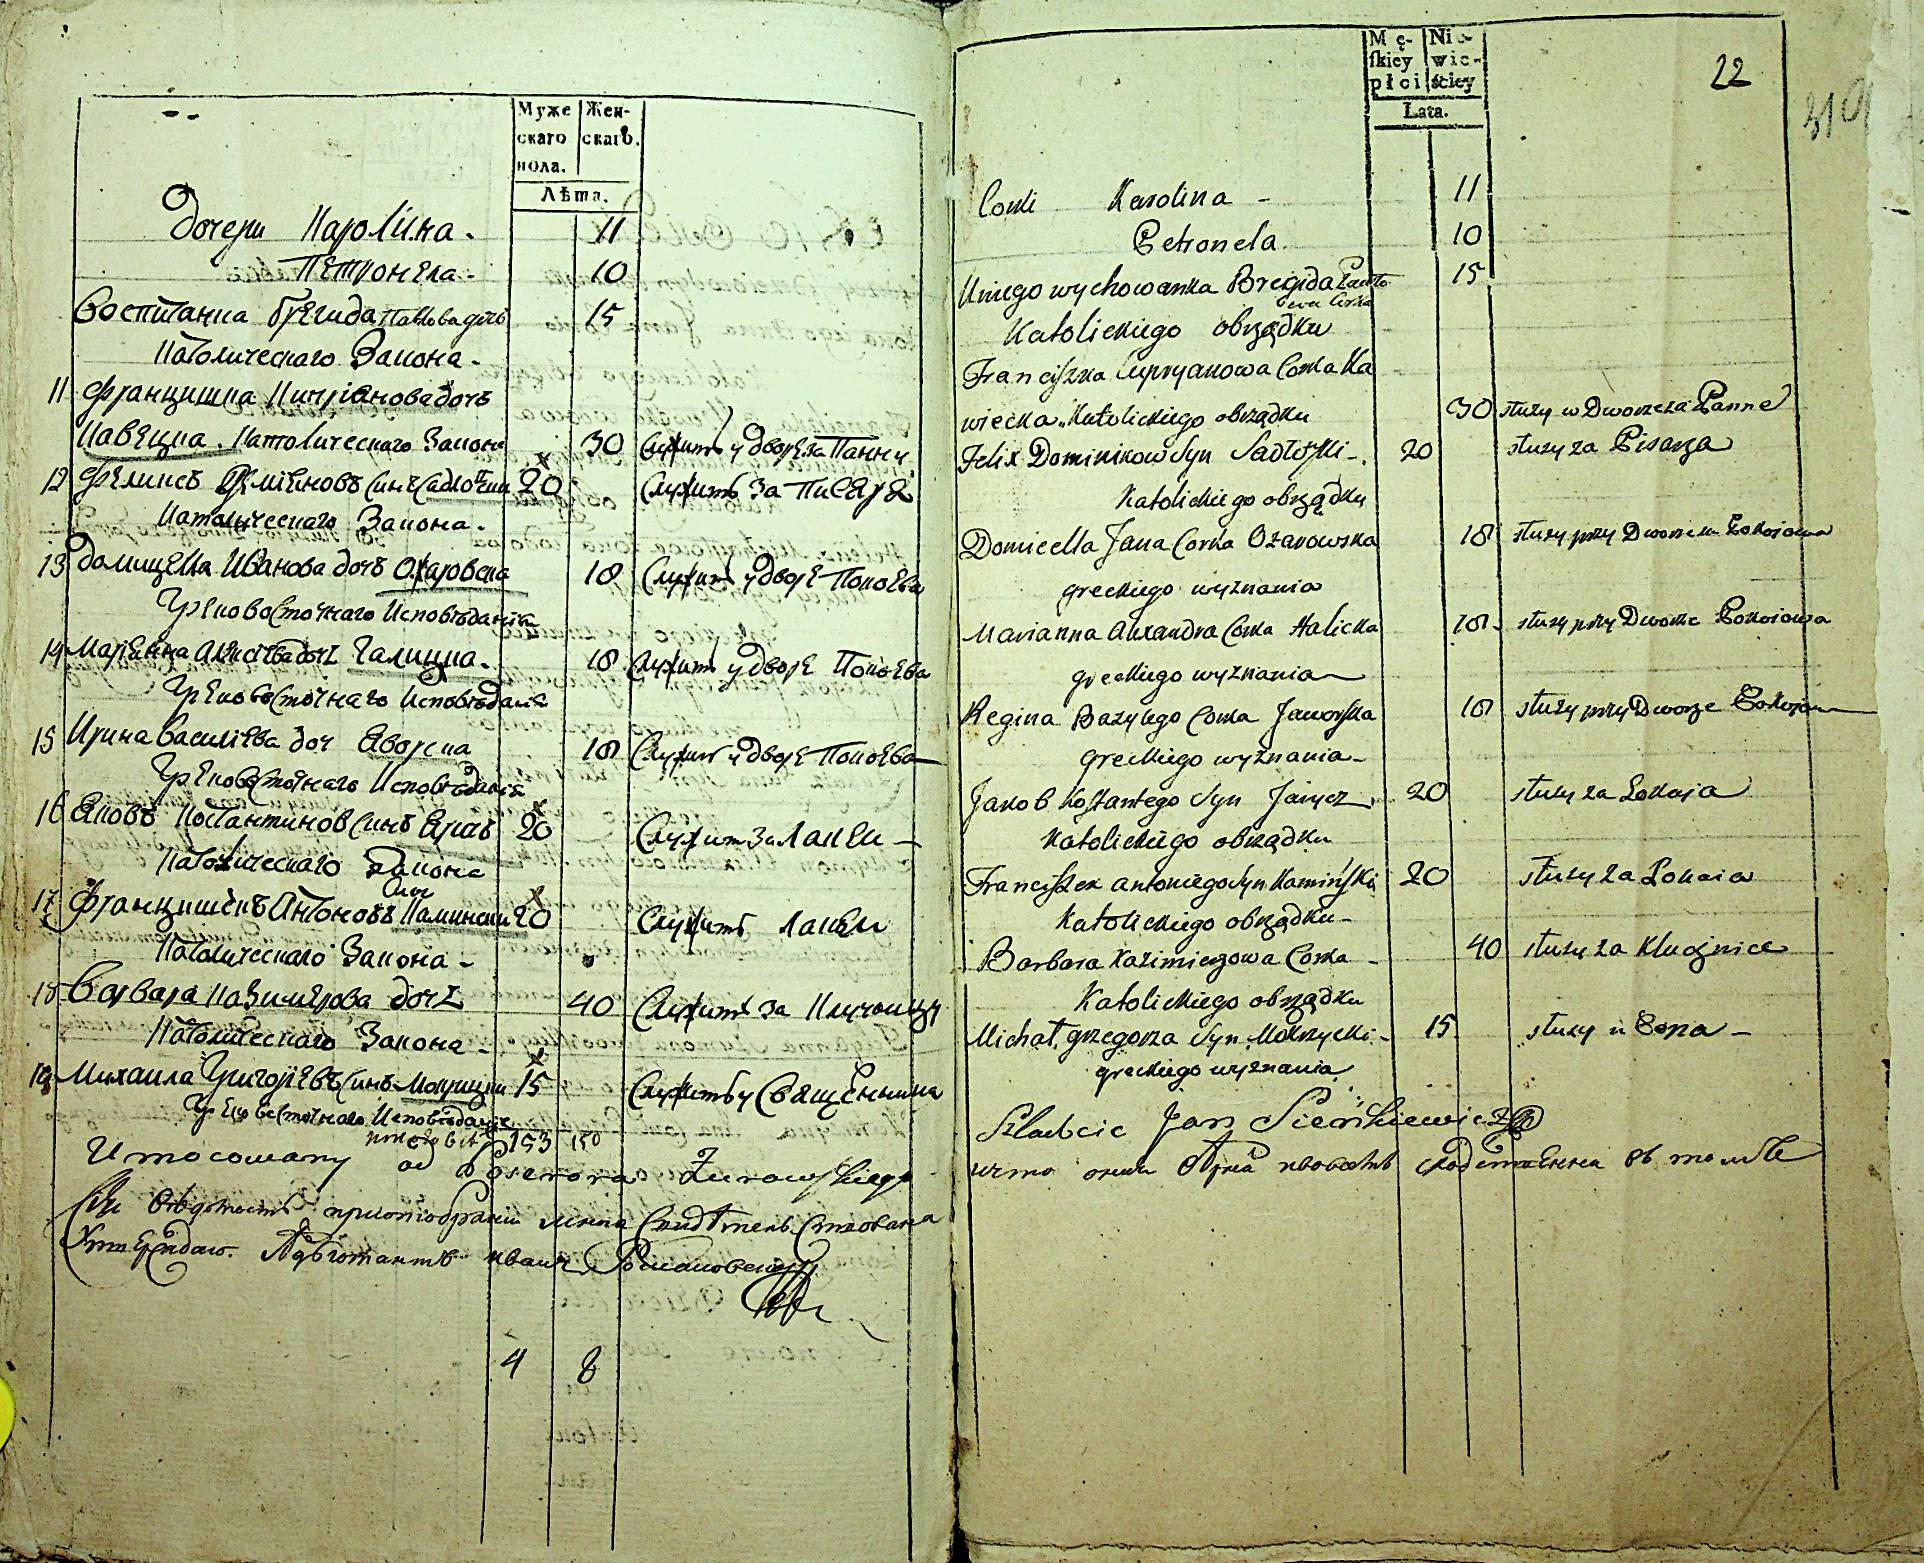 Муже Жен-
скаго скаго.
пола.
Лѣта.
Дочери Каролина. 11
Петронела. 10
Воспитанка Бригида Павлова дочь 15
Католическаго Закона.
11 Францишка Киприянова дочь
Кавецка. Католическаго Закона 30 Служитъ у дворе за Панну
12 Феликсъ синъ Садловски 20 Служитъ за Писаря
Католическаго Закона.
13 Домицела Иванова дочь Ожаровска 18 Служитъ у дворе Покоева
Грековосточнаго Исповѣданія
14 Марянна дочь Галицка. 18 Служитъ у дворе Покоева
Грековосточнаго Исповѣданія
15 Ирина Василіева доч Яворска 18 Служит у дворе Покоева
Грековосточнаго Исповѣданія
16 Яковъ Костантинов синъ 20 Служит за Лакеи
Католическаго Закона
17 Францишекъ Антоновъ Син Камински 20 Служитъ Лакеи
Католическаго Закона.
18 Варвара Казимерова дочь 40 Служитъ за Ключницу
Католическаго Закона.
19 Михаила Григорьевъ синъ Мокрицки 15 Служитъ у Священника
Грековосточнаго Исповѣданія
153 150
Umocowany od Żurowskiego
Адъютантъ
4 8
22
Mę- Nie-
ſkiey wie-
płci ściey
Lata.
Corki Karolina - 11
Petronela. 10
U niego wychowanka Bregida Pawło 15
wa Corka
Katolickiego obrządku
Franciszka Cypryanowa Corka Ka
wiecka Katolickiego obrządku 30 służy w Dworze za Pannę
Felix Dominikow Syn Sadłoski - 20 służy za Pisarza
Katolickiego obrządku
Domicella Jana Corka Ożarowska 18 służy przy Dworze Pokojowa
greckiego wyznania
Marianna Alexandra Corka Halicka 18 służy przy Dworze Pokojowa
greckiego wyznania
Regina Bazylego Corka Jaworska 18 służy przy Dworze Pokojowa
greckiego wyznania
Jakob Kostantego Syn 20 służy za Lokaja
Katolickiego obrządku
Franciszek Antoniego Syn Kamiński 20 służy za Lokaia
Katolickiego obrządku
Barbara Kazimierzowa Corka - 40 służy za Klucznice
Katolickiego obrządku
Michał Grzegorza Syn Mokrzycki - 15 służy u Popa -
greckiego wyznania
Jan Sieńkiewicz